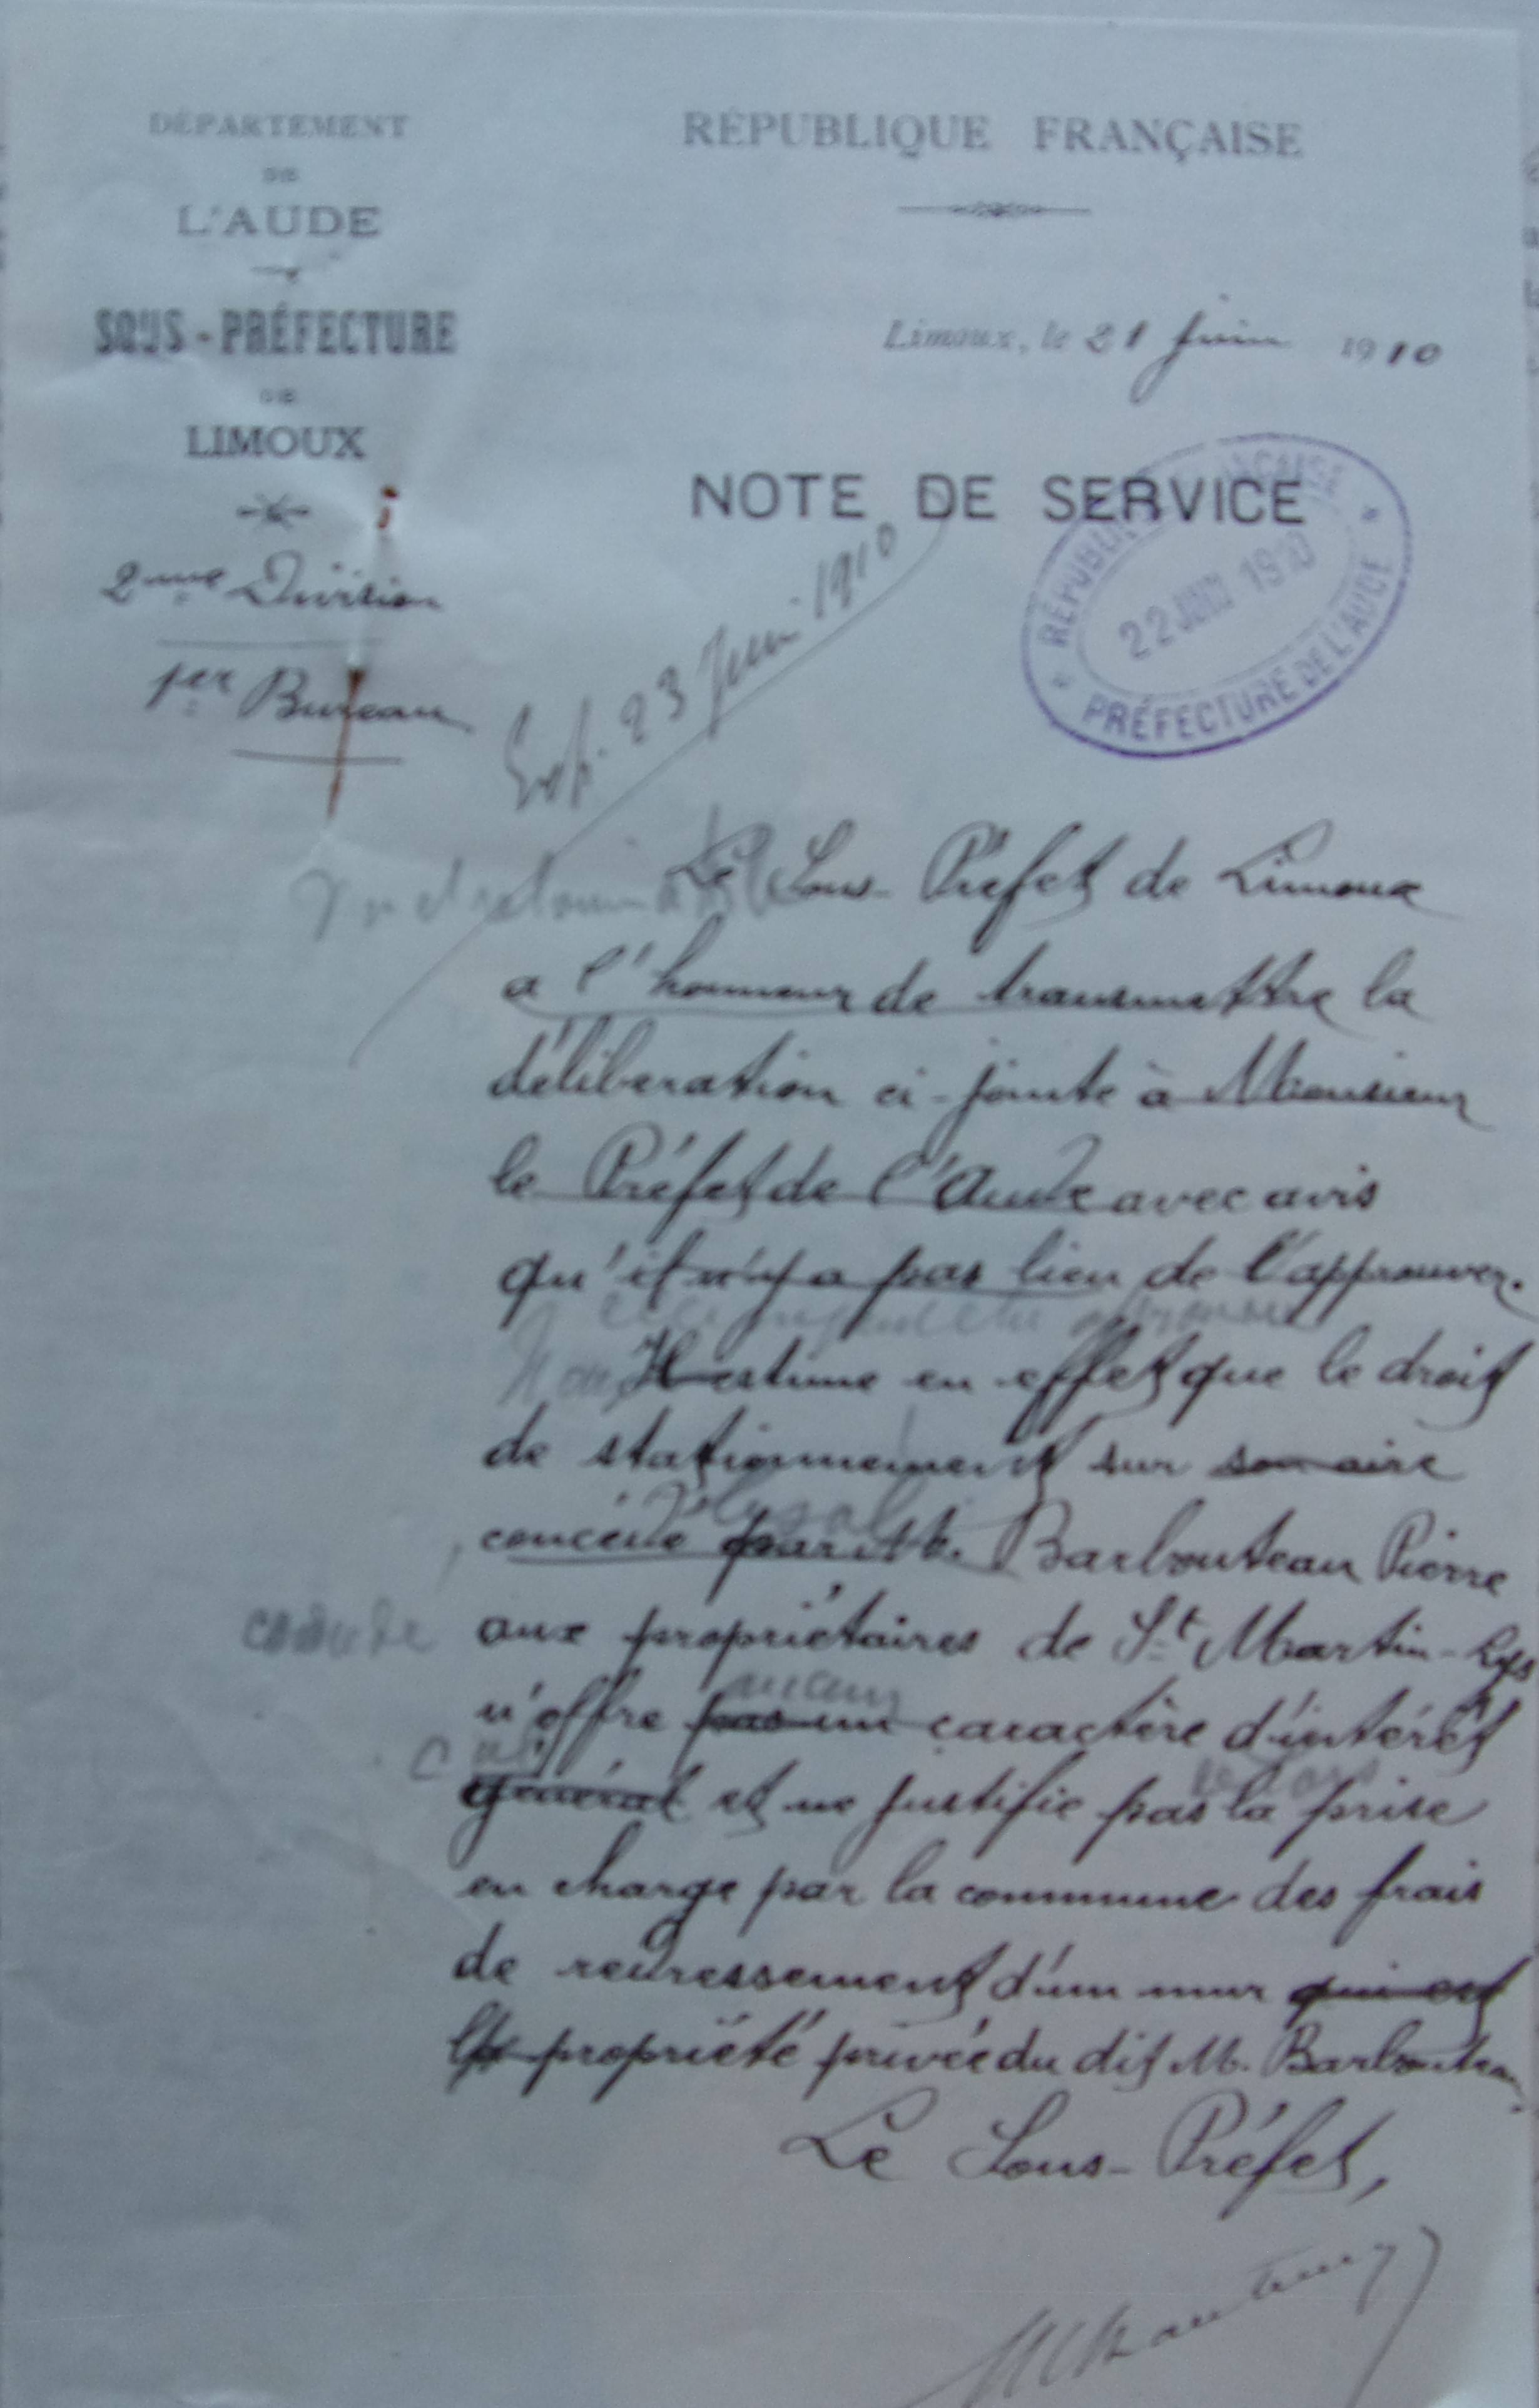 DÉPARTEMENT
DE
L'AUDE
SOUS-PRÉFECTURE
DE
LIMOUX
2me Division
1er Bureau
RÉPUBLIQUE FRANÇAISE
Limoux, le 21 juin 1910
NOTE DE SERVICE
RÉPUBLIQUE FRANÇAISE
22 JUIN 1910
PRÉFECTURE DE L'AUDE
Exp. 23 Juin 1910
Le Sous-Préfet de Limoux
a l'honneur de transmettre la
déliberation ci-jointe à Monsieur
le Préfet de l'Aude avec avis
qu'il n'y a pas lieu de l'approuver.
Il estime en effet que le droit
de stationnement sur son aire
concédé par M. Barbouteau Pierre
aux propriétaires de St Martin-Lys
aucun
n'offre pas un caractère d'intérêt
général et ne justifie pas la prise
en charge par la commune des frais
de redressement d'un mur qui est
la propriété privée du dit M. Barbouteau
Le Sous-Préfet,